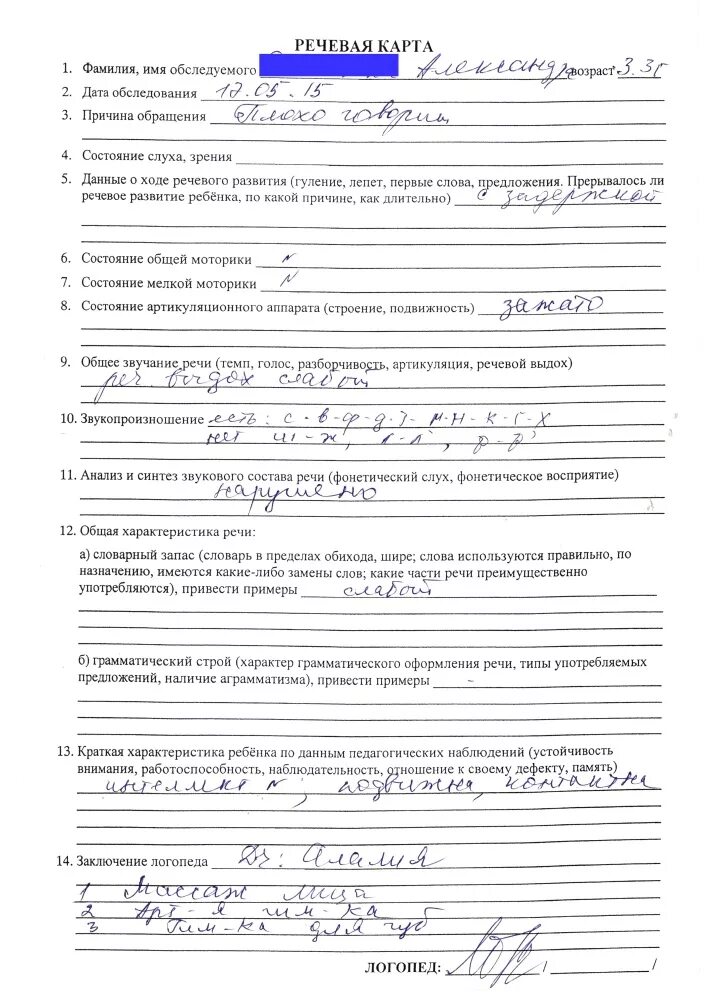 РЕЧЕВАЯ КАРТА
1. Фамилия, имя обследуемого Александра возраст 3.3г
2. Дата обследования 17.05.15
3. Причина обращения Плохо говорит
4. Состояние слуха, зрения
5. Данные о ходе речевого развития (гуление, лепет, первые слова, предложения. Прерывалось ли
речевое развитие ребёнка, по какой причине, как длительно) с задержкой
6. Состояние общей моторики N
7. Состояние мелкой моторики N
8. Состояние артикуляционного аппарата (строение, подвижность) зажато
9. Общее звучание речи (темп, голос, разборчивость, артикуляция, речевой выдох)
реч. выдох слабый
10. Звукопроизношение есть: с - в - ф - д - т - м - н - к - г - х
нет ш - ж, л - л', р - р'
11. Анализ и синтез звукового состава речи (фонетический слух, фонетическое восприятие)
нарушено
12. Общая характеристика речи:
а) словарный запас (словарь в пределах обихода, шире; слова используются правильно, по
назначению, имеются какие-либо замены слов; какие части речи преимущественно
употребляются), привести примеры слабый
б) грамматический строй (характер грамматического оформления речи, типы употребляемых
предложений, наличие аграмматизма), привести примеры -
13. Краткая характеристика ребёнка по данным педагогических наблюдений (устойчивость
внимания, работоспособность, наблюдательность, отношение к своему дефекту, память)
интеллект N, подвижна, контактна
14. Заключение логопеда Dz: Алалия
1 Массаж лица
2 Арт-я гим-ка
3 Гим-ка для губ
ЛОГОПЕД: / /